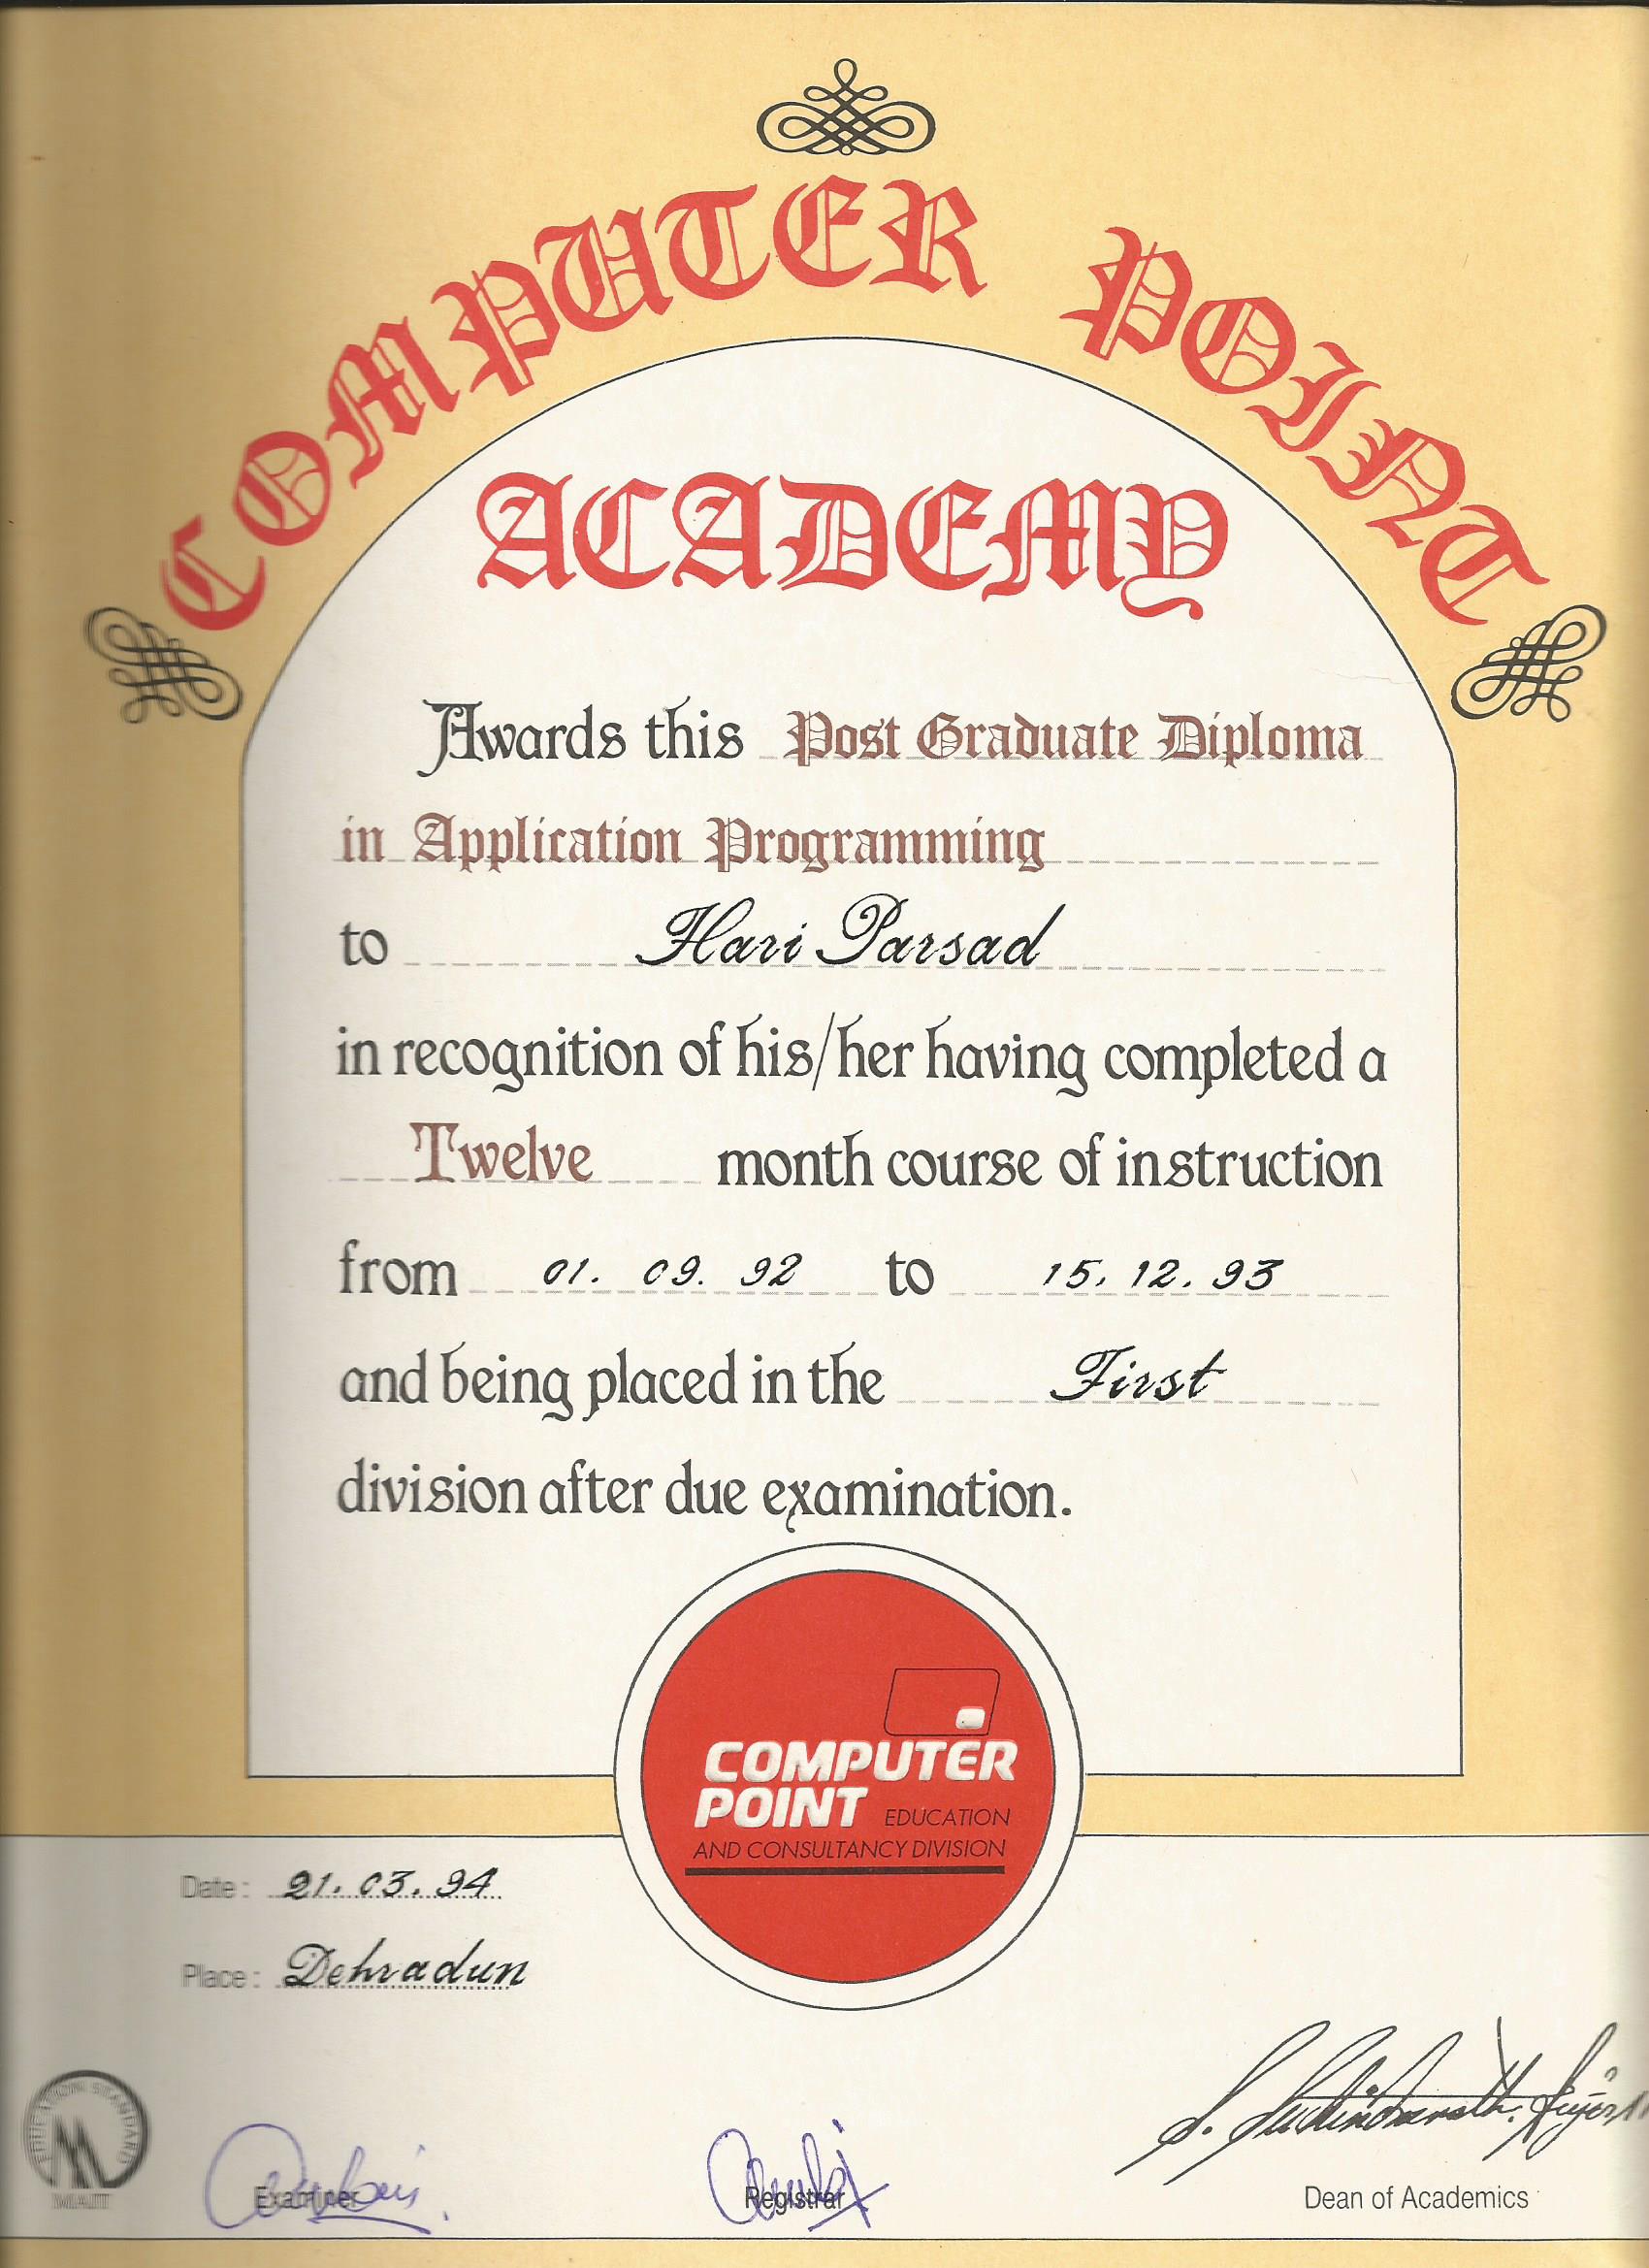 COMPUTER POINT
ACADEMY
Awards this Post Graduate Diploma
in Application Programming
to Hari Parsad
in recognition of his/her having completed a
Twelve month course of instruction
from 01. 09. 92 to 15. 12. 93
and being placed in the First
division after due examination.
COMPUTER
POINT EDUCATION
AND CONSULTANCY DIVISION
Date: 21. 03. 94
Place: Dehradun
EDUCATION STANDARD
MAIT
Examiner
Registrar
Dean of Academics